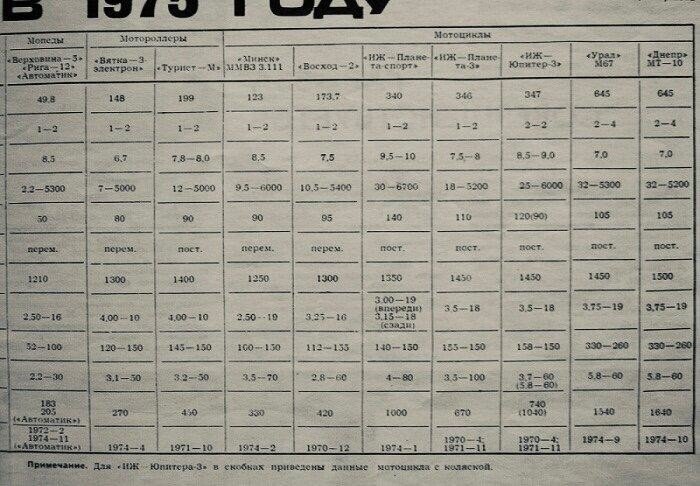 В 1975 ГОДУ
Мопеды Мотороллеры Мотоциклы
«Верховина—5» «Рига—12» «Автоматик» «Вятка—3-электрон» «Турист—М» «Минск» ММВЗ 3.111 «Восход—2» «ИЖ—Планета-спорт» «ИЖ—Планета-3» «ИЖ—Юпитер-3» «Урал» М67 «Днепр» МТ—10
49,8 148 199 123 173,7 340 346 347 645 645
1—2 1—2 1—2 1—2 1—2 1—2 1—2 2—2 2—4 2—4
8,5 6,7 7,8—8,0 8,5 7,5 9,5—10 7,5—8 8,5—9,0 7,0 7,0
2,2—5300 7—5000 12—5000 9,5—6000 10,5—5400 30—6700 18—5200 25—6000 32—5300 32—5200
50 80 90 90 95 140 110 120(90) 105 105
перем. перем. пост. перем. перем. пост. пост. пост. пост. пост.
1210 1300 1400 1250 1300 1350 1450 1450 1450 1500
2,50—16 4,00—10 4,00—10 2,50—19 3,25—16 3,00—19 (впереди) 3,15—18 (сзади) 3,5—18 3,5—18 3,75—19 3,75—19
52—100 120—150 145—150 100—150 112—135 140—150 155—150 158—150 330—260 330—260
2,2—30 3,1—50 3,2—50 3,5—70 2,8—60 4—80 3,5—100 3,7—60 (5,8—60) 5,8—60 5,8—60
183 205 («Автоматик») 270 330 420 1000 670 740 (1040) 1540 1640
1972—2 1974—11 («Автоматик») 1974—4 1971—10 1974—2 1970—12 1974—1 1970—4; 1971—11 1970—4; 1971—11 1974—9 1974—10
Примечание. Для «ИЖ—Юпитера-3» в скобках приведены данные мотоцикла с коляской.